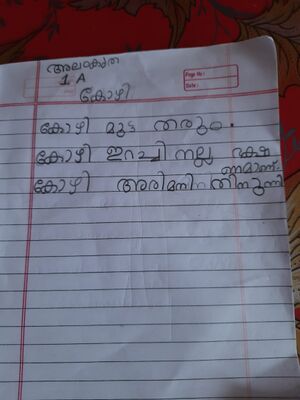 അലംകൃത
1 A
Page No :
Date :
കോഴി
കോഴി മുട്ട തരും.
കോഴി ഇറച്ചി നല്ല ഭക്ഷ
ണമാണ്.
കോഴി അരിമണി തിന്നുന്നു